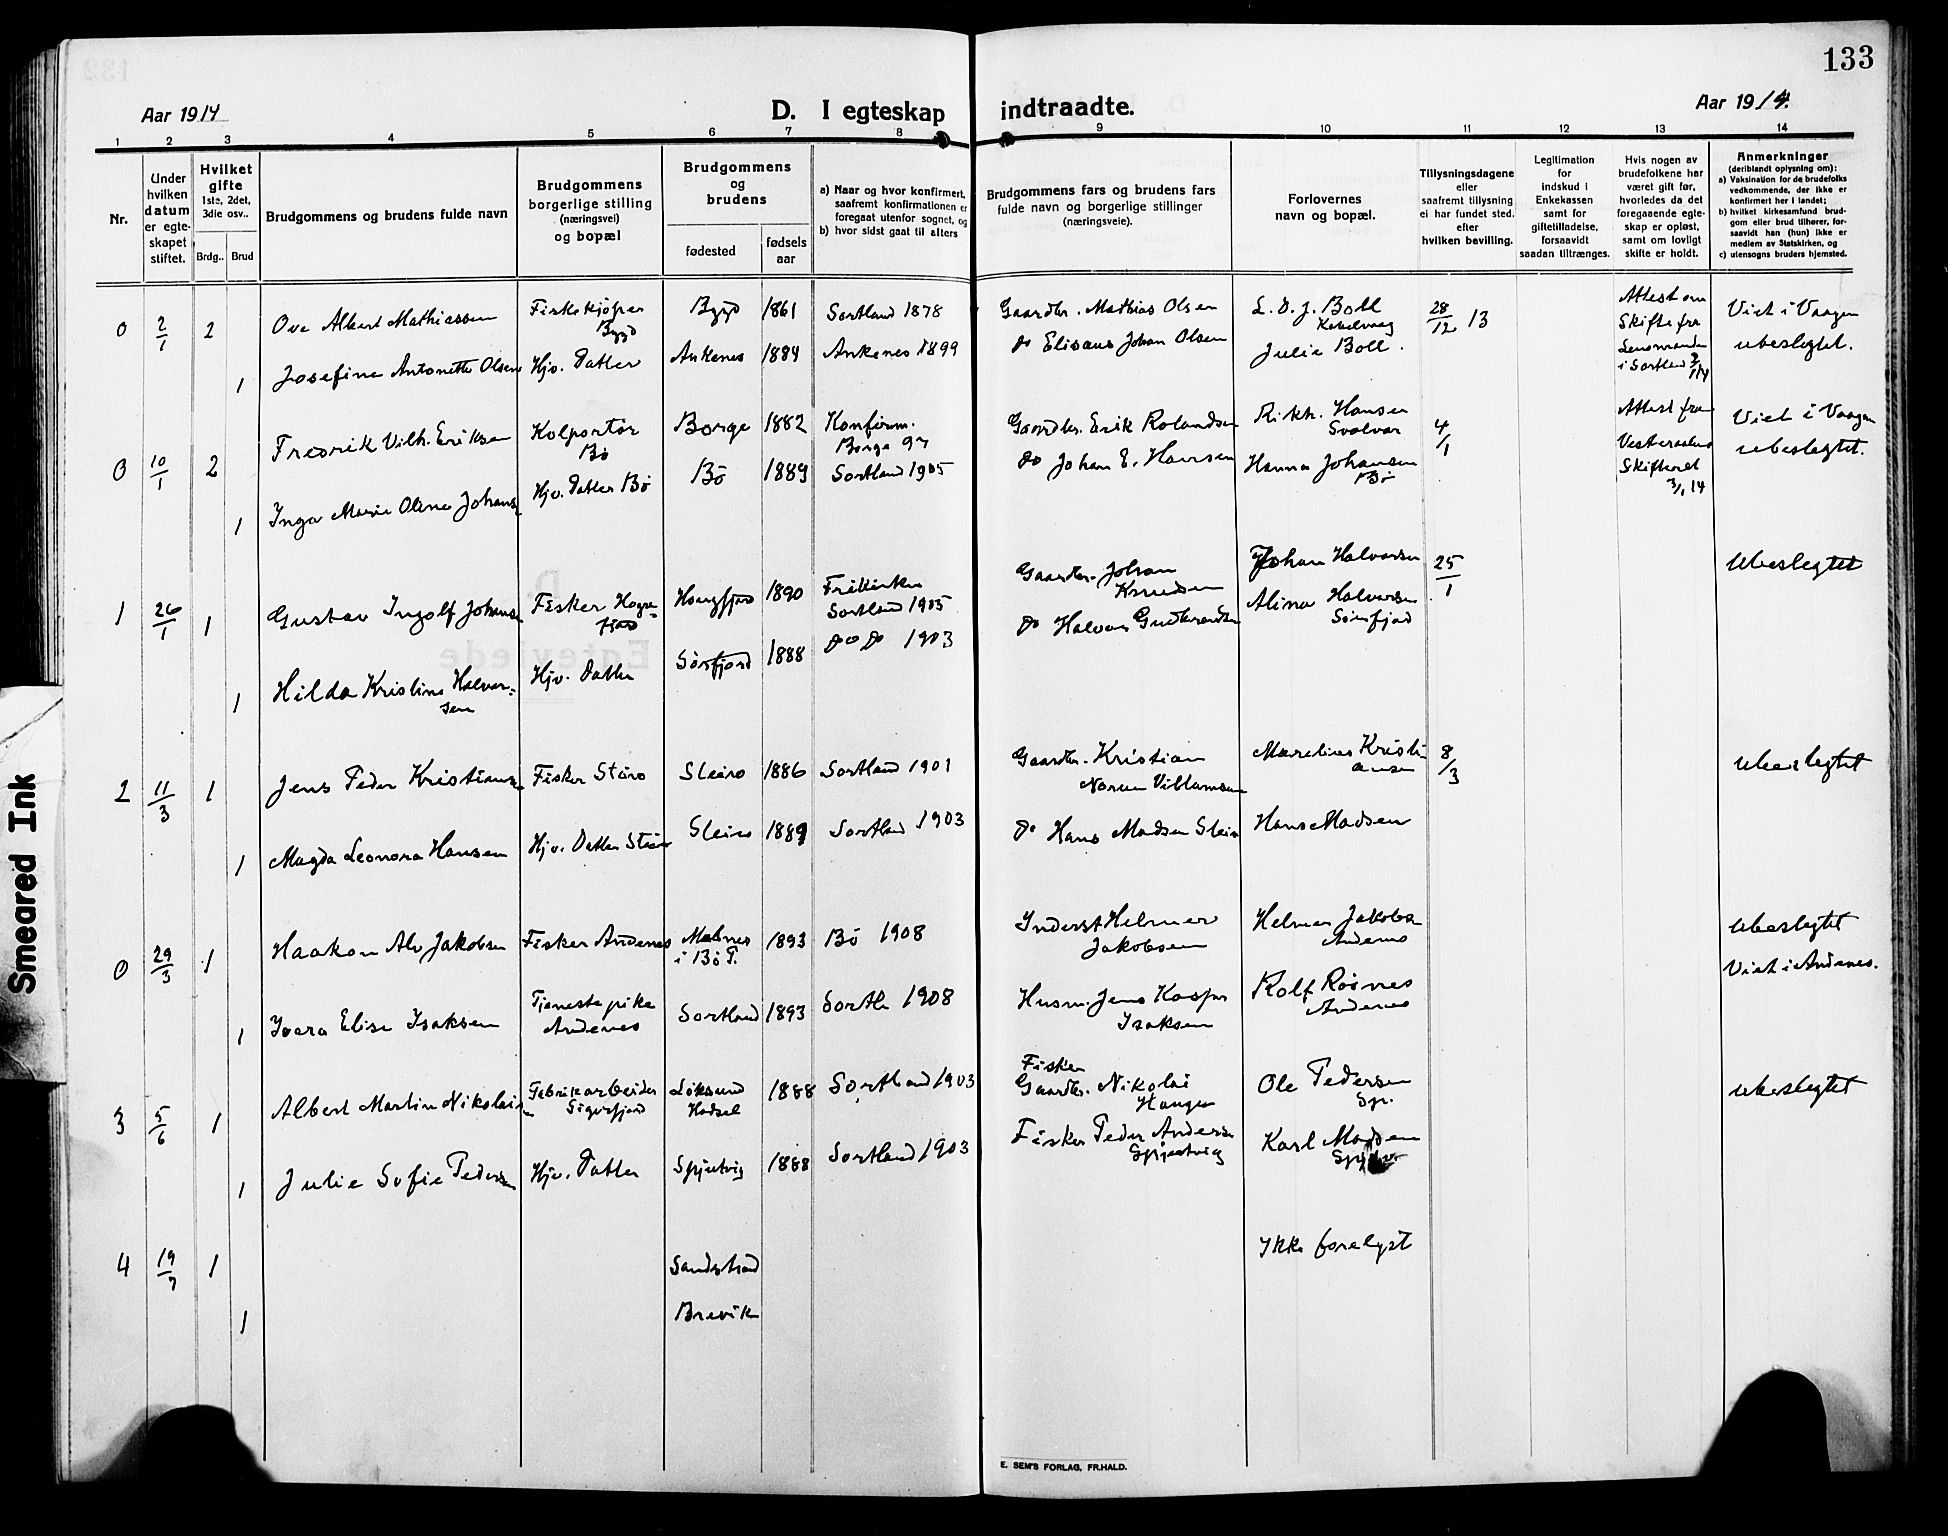 133
Aar 1914
D. I egteskap indtraadte.
Aar 1914.
1 2 3 4 5 6 7 8 9 10 11 12 13 14
Nr.
Under hvilken datum er egteskapet stiftet.
Hvilket gifte 1ste, 2det, 3die osv..
Brdg.. Brud
Brudgommens og brudens fulde navn
Brudgommens borgerlige stilling (næringsvei) og bopæl
Brudgommens og brudens
fødested
fødsels aar
a) Naar og hvor konfirmert, saafremt konfirmationen er foregaat utenfor sognet, og
b) hvor sidst gaat til alters
Brudgommens fars og brudens fars fulde navn og borgerlige stillinger (næringsveie).
Forlovernes navn og bopæl.
Tillysningsdagene eller saafremt tillysning ei har fundet sted. efter hvilken bevilling.
Legitimation for indskud i Enkekassen samt for giftetilladelse, forsaavidt saadan tiltrænges.
Hvis nogen av brudefolkene har været gift før, hvorledes da det foregaaende egteskap er opløst, samt om lovligt skifte er holdt.
Anmerkninger
(deriblandt oplysning om):
a) Vaksination for de brudefolks vedkommende, der ikke er konfirmert her i landet;
b) hvilket kirkesamfund brudgom eller brud tilhører, forsaavidt han (hun) ikke er medlem av Statskirken, og
c) utensogns bruders hjemsted.
0 2/1 2 Ove Albert Mathiassen Fiskekjøper Bygd Bygd 1861 Sortland 1878 Gaardbr. Mathias Olsen L. D. J. Boll Kabelvaag 28/12 13 Attest om Skifte fra Lensmanden i Sortland 2/1 14 Viet i Vaagen
1 Josefine Antonette Olsen Hjv. Datter Ankenes 1884 Ankenes 1899 do Elisæus Johan Olsen Julie Boll. ubeslegtet.
0 10/1 2 Fredrik Vilh. Eriksen Kolportør Bø Borge 1882 Konfirm. Borge 97 Gaardbr. Erik Rolandsen Rikh. Hansen Svolvær 4/1 Attest fra Vesteraalens Skifteret 3/1 14 Viet i Vaagen
1 Inga Marie Oline Johans Hjv. Datter Bø Bø 1889 Sortland 1905 do Johan E. Hansen Hanna Johansen Bø ubeslegtet.
1 26/1 1 Gustav Ingolf Johans Fisker Hognfjord Hongfjord 1890 Frikirken Sortland 1905 Gaardbr. Johan Knudsen Johan Halvorsen 25/1 Ubeslegtet
1 Hilda Kristine Halvorsen Hjv. Datter Sørfjord 1888 do do 1903 do Halvor Gudbrandsen Alina Halvorsen Sørfjord
2 11/3 1 Jens Peder Kristians Fisker Steiro Steiro 1886 Sortland 1901 Gaardbr. Kristian Norum Villumsen Marelius Kristiansen 8/3 Ubeslegtet
1 Magda Leonora Hansen Hjv. Datter Steiro Steiro 1889 Sortland 1903 do Hans Madsen Steiro Hans Madsen
0 29/3 1 Haakon Alv Jakobsen Fisker Andenes Malnes i Bø P. 1893 Bø 1908 Inderst Helmer Jakobsen Helmer Jakobsen Andenes Ubeslegtet
1 Ivara Elise Isaksen Tjenestepike Andenes Sortland 1893 Sortl. 1908 Husm. Jens Kasper Isaksen Rolf Røsnes Andenes Viet i Andenes.
3 5/6 1 Albert Martin Nikolais Fabrikarbeider Sigerfjord Løksund Hadsel 1888 Sortland 1903 Fisker Gaardbr. Nikolai Haugen Ole Pedersen Spj. Ubeslegtet
1 Julie Sofie Pedersen Hjv. Datter Spjutvig 1888 Sortland 1903 Fisker Peder Anders Spjutvig Karl Madsen
4 19/7 1 Sandstrand Ikke forelyst
1 Brevik
E. SEM'S FORLAG, FR.HALD.
Smeared Ink